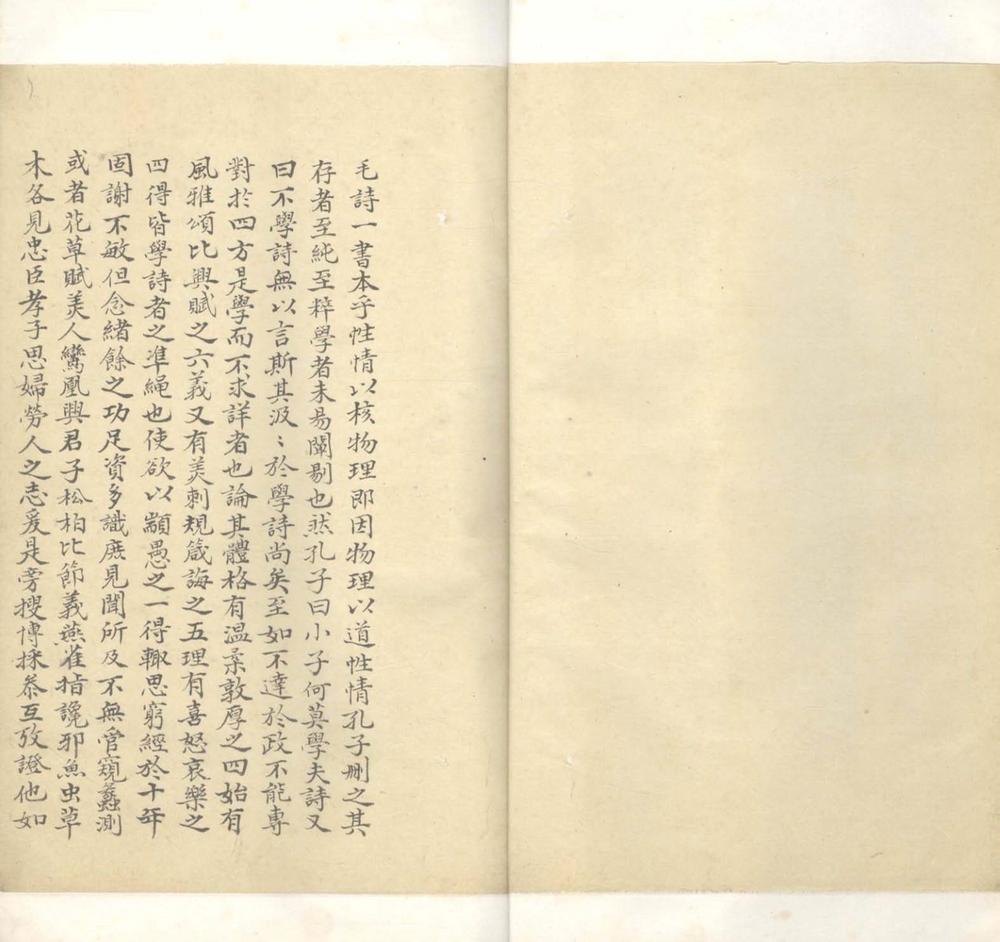 毛詩一書本乎性情以核物理即因物理以道性情孔子刪之其
存者至純至粹學者未易闡剔也然孔子曰小子何莫學夫詩又
曰不學詩無以言斯其汲〻於學詩尚矣至如不達於政不能專
對於四方是學而不求詳者也論其體格有温柔敦厚之四始有
風雅頌比興賦之六義又有美刺規箴誨之五理有喜怒哀樂之
四得皆學詩者之準繩也使欲以顓愚之一得輙思窮經於十年
固謝不敏但念緒餘之功足資多識庶見聞所及不無管窺蠡測
或者花草賦美人鸞凰興君子松柏比節義燕雀指讒邪魚虫草
木各見忠臣孝子思婦勞人之志爰是旁搜博採叅互攷證他如